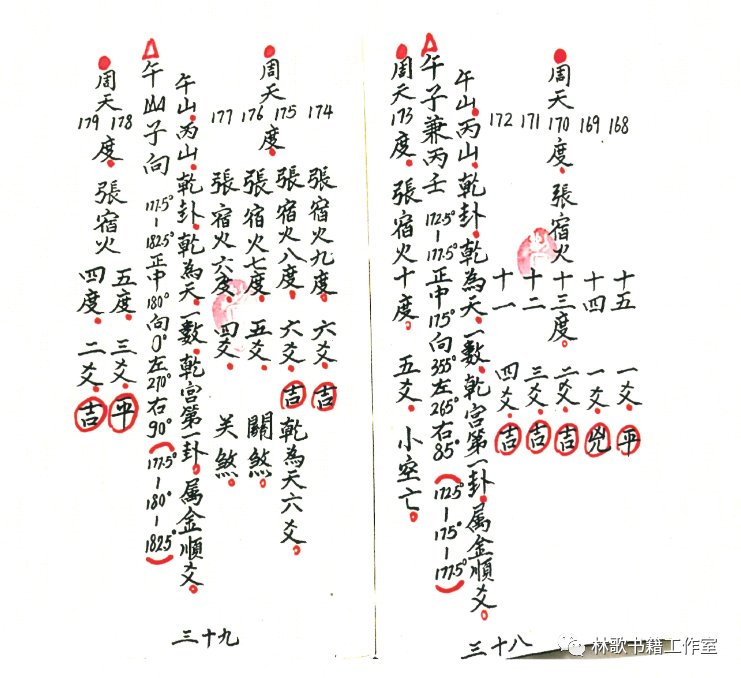 168 十五 一爻。平
169 十四 一爻。凶
周天170度。張宿火十三度。二爻。吉
171 十二 三爻。吉
172 十一 四爻。吉
午山。丙山。乾卦。乾為天。一數。乾宫第一卦。属金順爻。
午子兼丙壬 172.5°-177.5°正中175°向355°左265°右85°(172.5°-175°-177.5°)
周天173度。張宿火十度。五爻。小空亡。
三十八
174 張宿火九度。六爻。吉
175 張宿火八度。六爻。吉 乾為天六爻。
周天度。
176 張宿火七度。五爻。關煞。
177 張宿火六度。四爻。关煞。
午山。丙山。乾卦。乾為天。一數。乾宫第一卦。属金順爻。
午山子向 177.5°-182.5°正中180°向0°左270°右90°(177.5°-180°-182.5°)
178 五度。三爻。平
周天度。張宿火
179 四度。二爻。吉
三十九
林歌书籍工作室